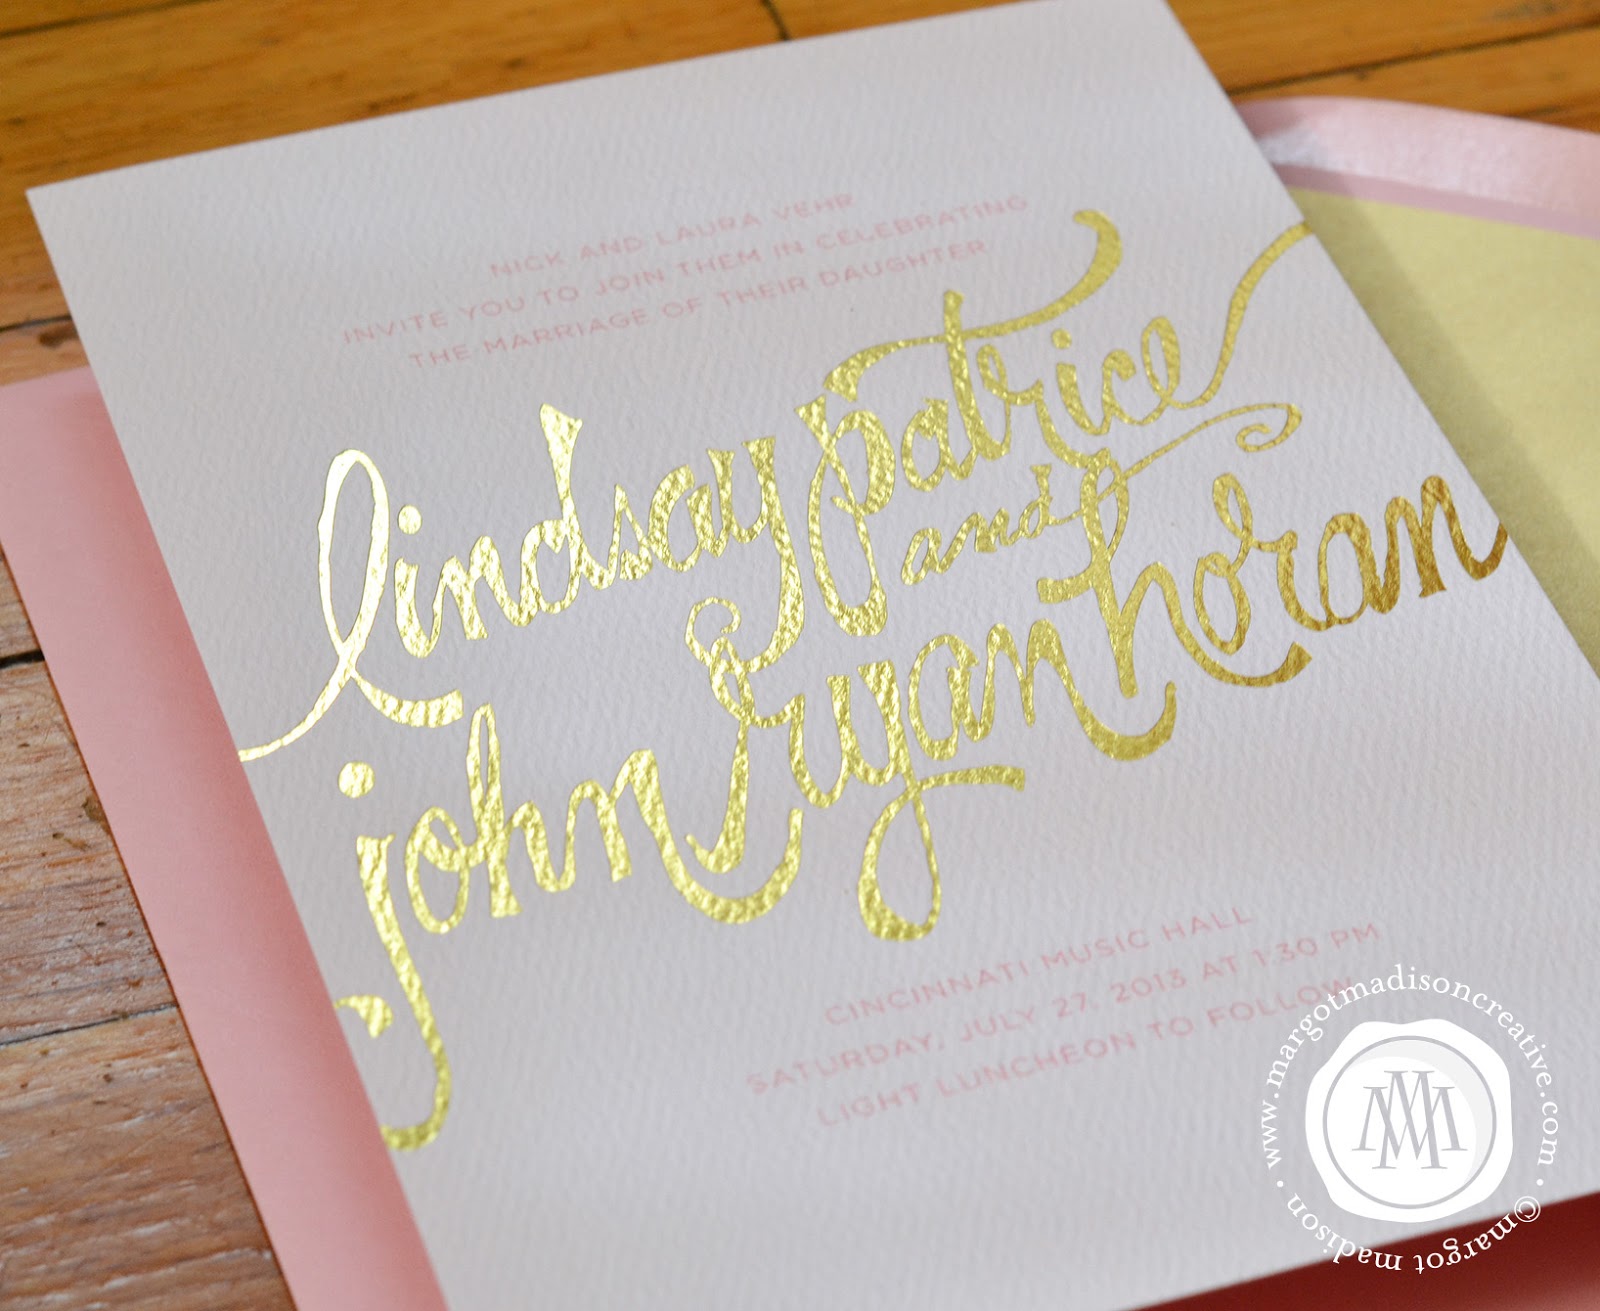 NICK AND LAURA VEHR
INVITE YOU TO JOIN THEM IN CELEBRATING
THE MARRIAGE OF THEIR DAUGHTER
lindsay patrice
and
john ryan horan
CINCINNATI MUSIC HALL
SATURDAY, JULY 27, 2013 AT 1:30 PM
LIGHT LUNCHEON TO FOLLOW
www.margotmadisoncreative.com • ©margot madison •
MMM